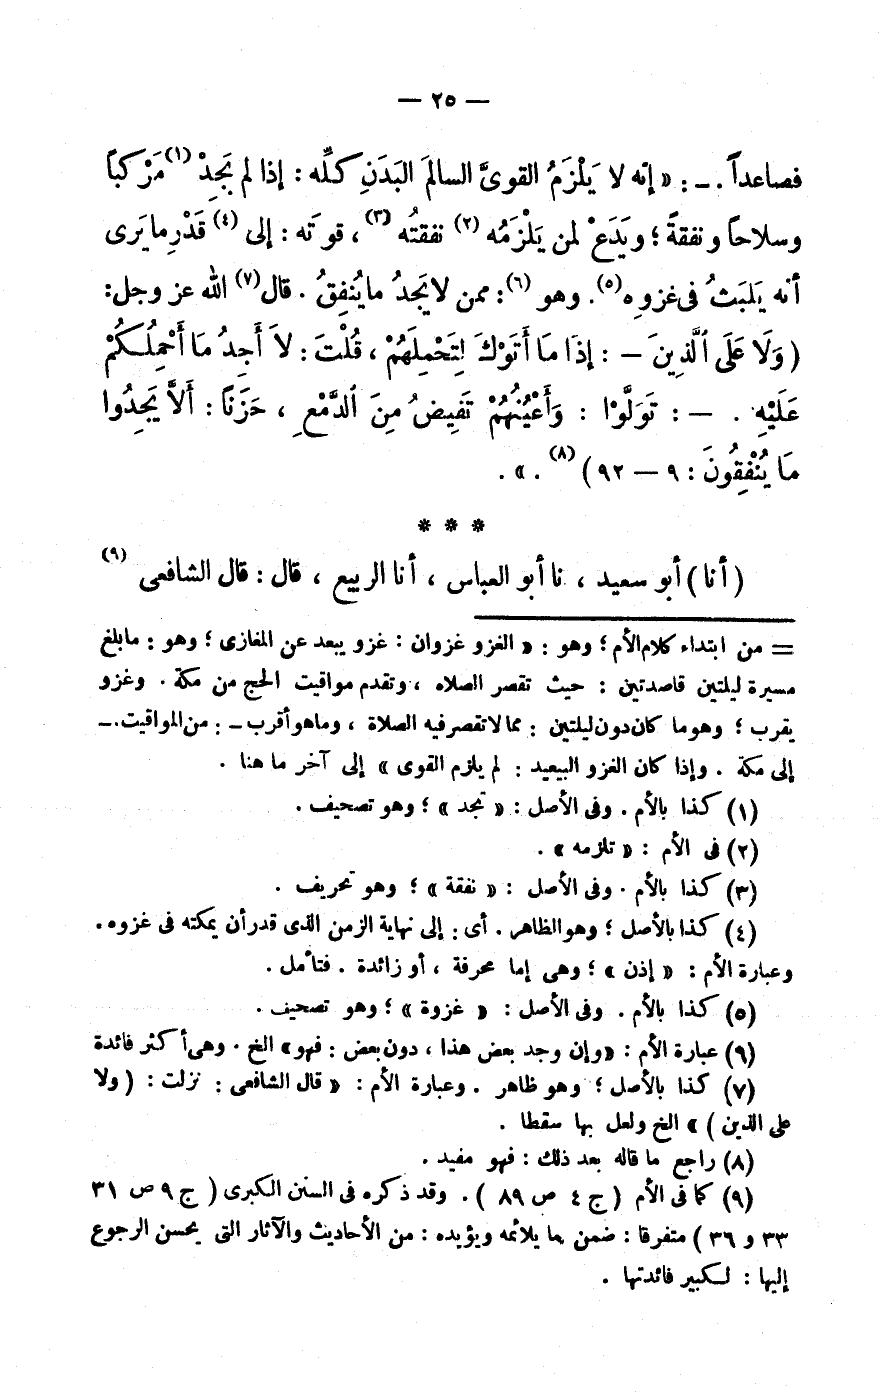 — ٢٥ —
فصاعداً . ــ : « إنه لا يَلْزَمُ القوىَّ السالمَ البَدَنِ كلِّه : إذا لم يَجِدْ (١) مَرْكباً
وسلاحاً ونفقةً ؛ ويَدَعْ لمن يَلْزَمُه (٢) نفقتُه (٣) ، قوتَه : إلى (٤) قَدْرِ ما يَرى
أنه يَلبَثُ فى غزوِه (٥) . وهو (٦) : ممن لا يَجدُ ما يُنفِقُ . قال (٧) الله عز وجل :
( وَلَا عَلَى ٱلَّذِينَ — : إِذَا مَا أَتَوْكَ لِتَحْمِلَهُمْ ، قُلْتَ : لاَ أَجِدُ مَا أَحْمِلُـكُمْ
عَلَيْهِ . — : تَوَلَّوْا : وَأَعْيُنُهُمْ تَفِيضُ مِنَ ٱلدَّمْعِ ، حَزَنًا : أَلاَّ يَجِدُوا
مَا يُنْفِقُونَ : ٩ — ٩٢ ) (٨) . » .
* * *
( أنا ) أبو سعيد ، نا أبو العباس ، أنا الربيع ، قال : قال الشافعى (٩)
= من ابتداء كلام الأم ؛ وهو : « الغزو غزوان : غزو يبعد عن المغازى ؛ وهو : ما بلغ
مسيرة ليلتين قاصدتين : حيث تقصر الصلاه ، وتقدم مواقيت الحج من مكة . وغزو
يقرب ؛ وهو ما كان دون ليلتين : مما لا تقصر فيه الصلاة ، وما هو أقرب ــ : من المواقيت . ــ
إلى مكة . وإذا كان الغزو البيعيد : لم يلزم القوى » إلى آخر ما هنا .
(١) كذا بالأم . وفى الأصل : « تجد » ؛ وهو تصحيف .
(٢) فى الأم : « تلزمه » .
(٣) كذا بالأم . وفى الأصل : « نفقة » ؛ وهو تحريف .
(٤) كذا بالأصل ؛ وهو الظاهر . أى : إلى نهاية الزمن الذى قدر أن يمكثه فى غزوه .
وعبارة الأم : « إذن » ؛ وهى إما محرفة ، أو زائدة . فتأمل .
(٥) كذا بالأم . وفى الأصل : « غزوة » ؛ وهو تصحيف .
(٩) عبارة الأم : « وإن وجد بعض هذا ، دون بعض : فهو » الخ . وهى أكثر فائدة
(٧) كذا بالأصل ؛ وهو ظاهر . وعبارة الأم : « قال الشافعى : نزلت : ( ولا
على الذين ) » الخ ولعل بها سقطا .
(٨) راجع ما قاله بعد ذلك : فهو مفيد .
(٩) كما فى الأم ( ج ٤ ص ٨٩ ) . وقد ذكره فى السنن الكبرى ( ج ٩ ص ٣١
٣٣ و ٣٦ ) متفرقا : ضمن ما يلائمه ويؤيده : من الأحاديث والآثار التى يحسن الرجوع
إليها : لـكبير فائدتها .